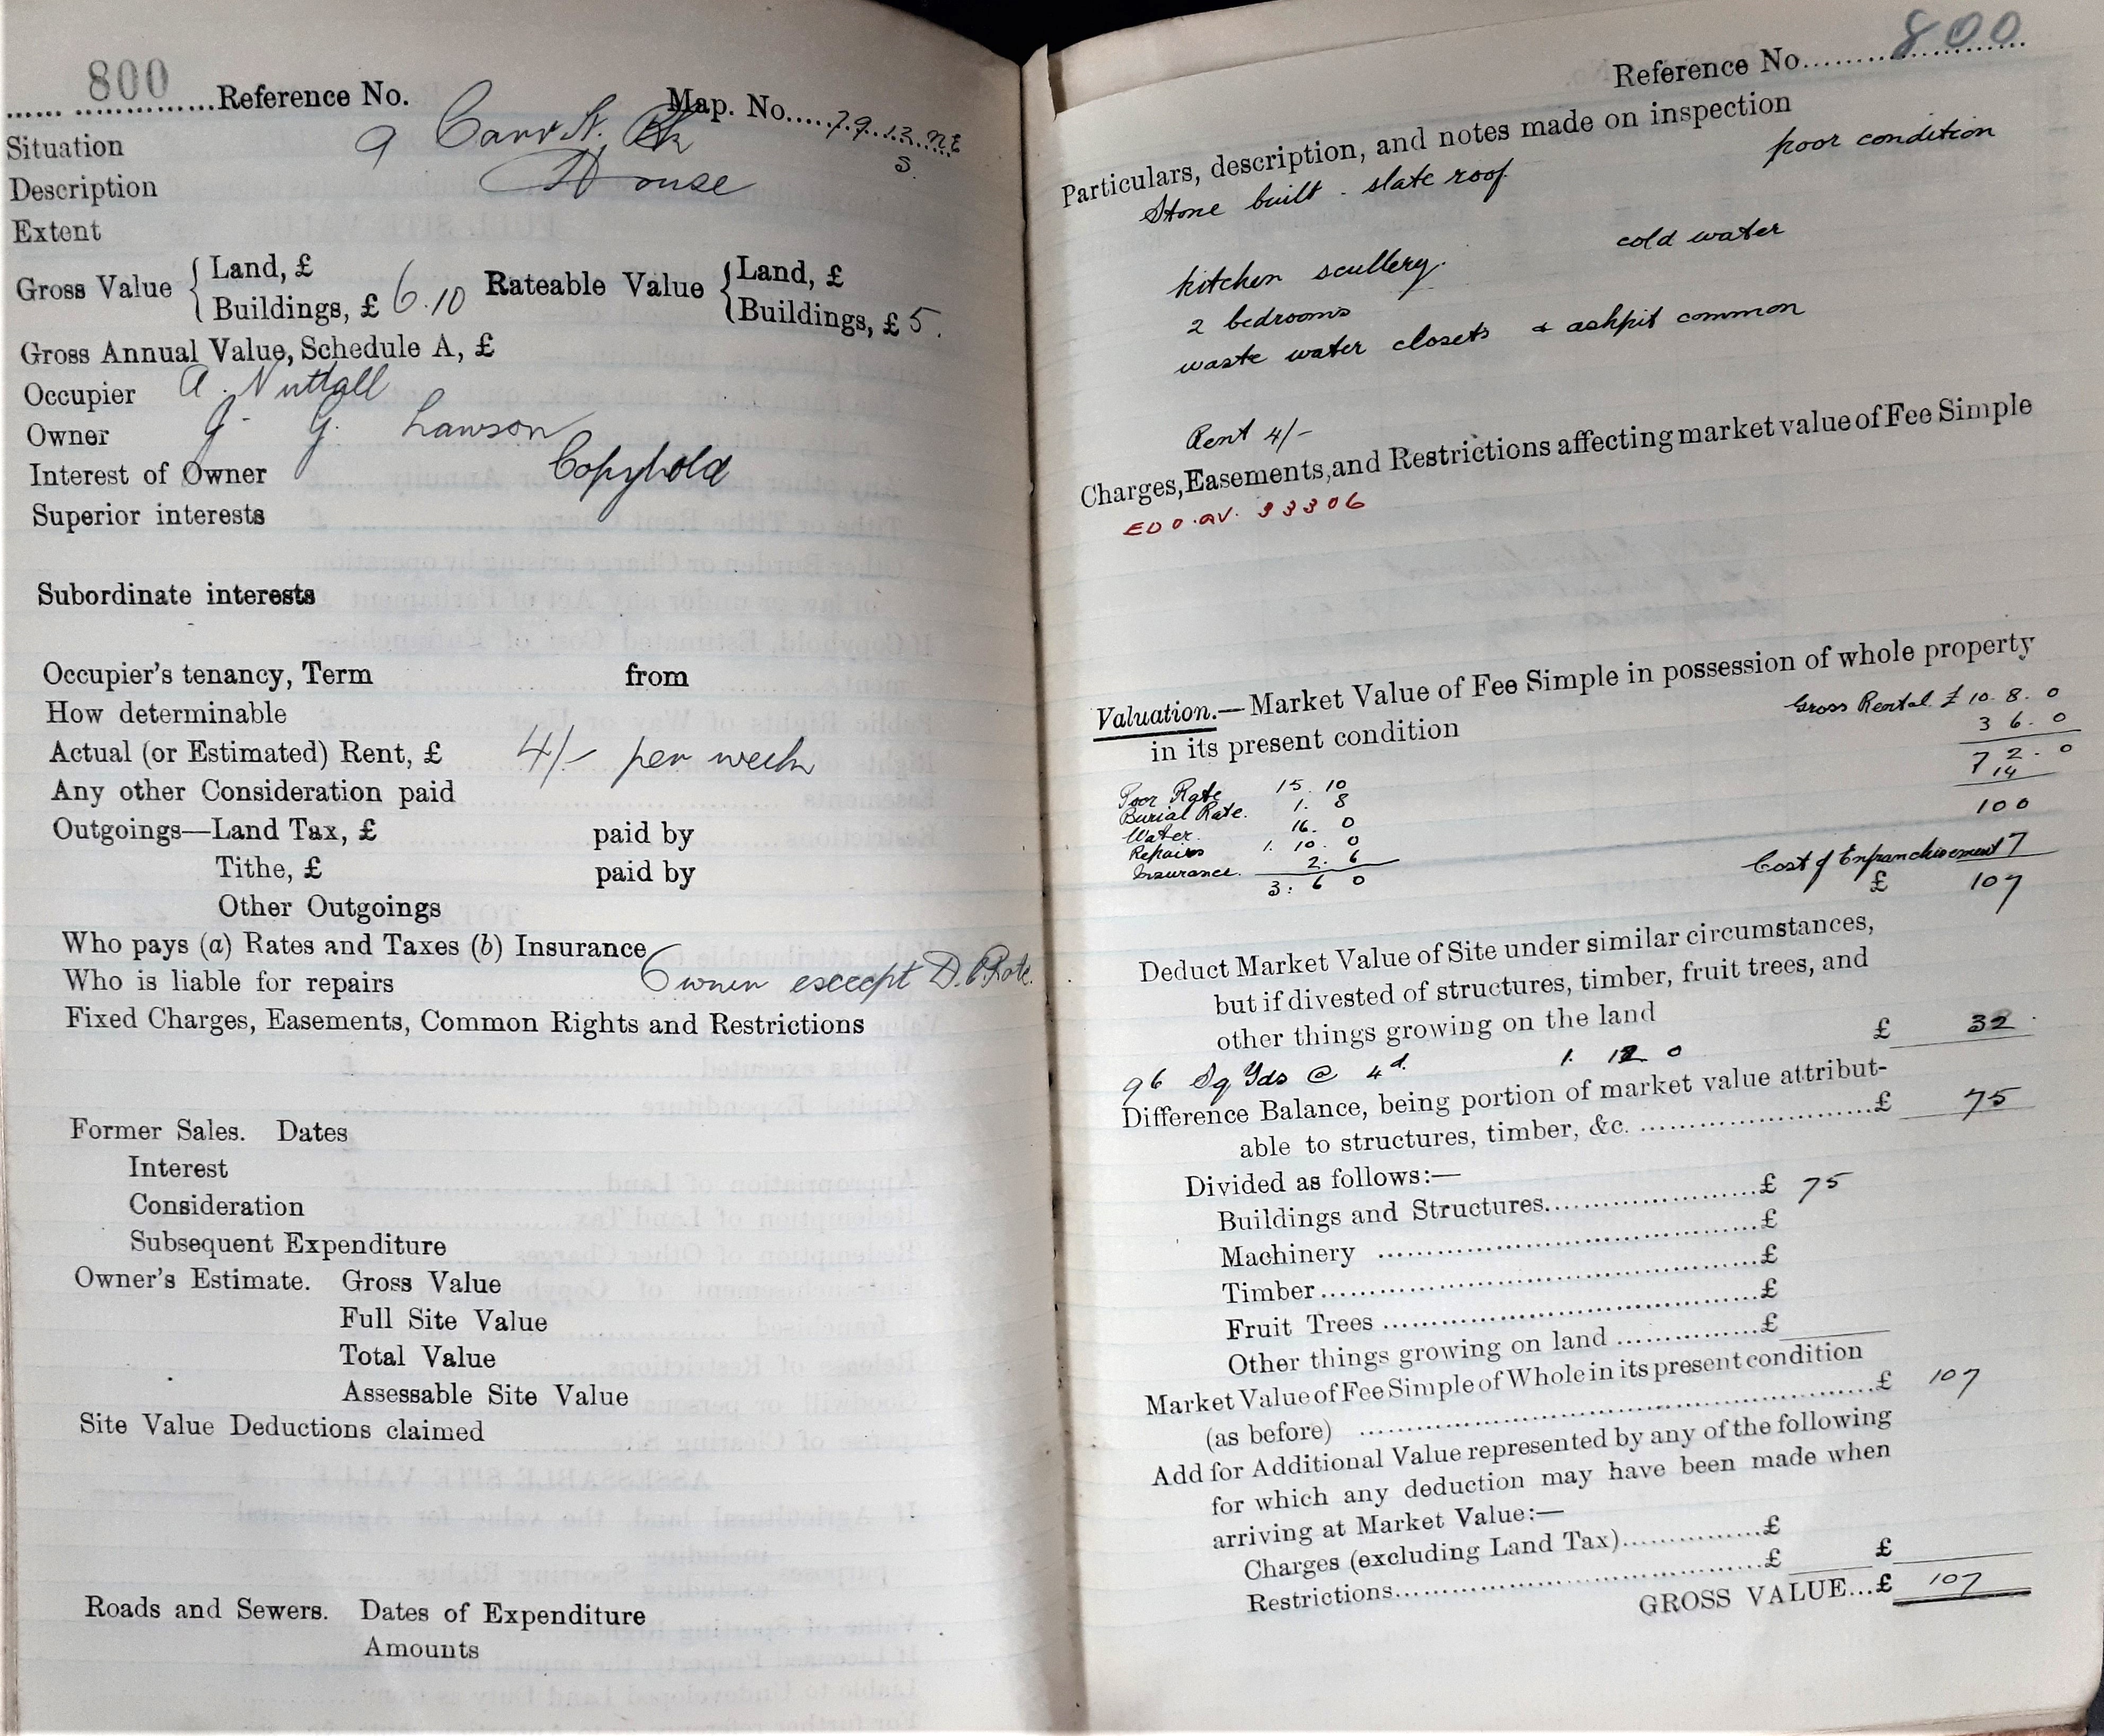 800 Reference No. Map. No. 79.13. NE
S.
Situation 9 Carr St.
Description House
Extent
Gross Value { Land, £
Buildings, £ 6.10 Rateable Value { Land, £
Buildings, £ 5.
Gross Annual Value, Schedule A, £
Occupier A. Nuttall
Owner J. G. Lawson
Interest of Owner Copyhold
Superior interests
Subordinate interests
Occupier's tenancy, Term from
How determinable
Actual (or Estimated) Rent, £ 4/- per week
Any other Consideration paid
Outgoings—Land Tax, £ paid by
Tithe, £ paid by
Other Outgoings
Who pays (a) Rates and Taxes (b) Insurance
Who is liable for repairs Owner except D. C. Rate.
Fixed Charges, Easements, Common Rights and Restrictions
Former Sales. Dates
Interest
Consideration
Subsequent Expenditure
Owner's Estimate. Gross Value
Full Site Value
Total Value
Assessable Site Value
Site Value Deductions claimed
Roads and Sewers. Dates of Expenditure
Amounts
Reference No. 800
Particulars, description, and notes made on inspection
Stone built . slate roof. poor condition
kitchen scullery. cold water
2 bedrooms
waste water closets & ashpit common
Rent 4/-
Charges, Easements, and Restrictions affecting market value of Fee Simple
33306
Valuation.—Market Value of Fee Simple in possession of whole property
in its present condition
Gross Rental £ 10. 8. 0
3 6. 0
7 2. 0
14
100
Poor Rate 15. 10
Burial Rate. 1. 8
Water. 16. 0
Repairs 1. 10. 0
Insurance. 2. 6
3: 6 0
Cost of Enfranchisement 7
£ 107
Deduct Market Value of Site under similar circumstances,
but if divested of structures, timber, fruit trees, and
other things growing on the land £ 32
96 Sq Yds @ 4d. 1. 12 0
Difference Balance, being portion of market value attribut-
able to structures, timber, &c. £ 75
Divided as follows:—
Buildings and Structures £ 75
Machinery £
Timber £
Fruit Trees £
Other things growing on land £
Market Value of Fee Simple of Whole in its present condition
(as before) £ 107
Add for Additional Value represented by any of the following
for which any deduction may have been made when
arriving at Market Value:—
Charges (excluding Land Tax) £
Restrictions £ £
GROSS VALUE...£ 107